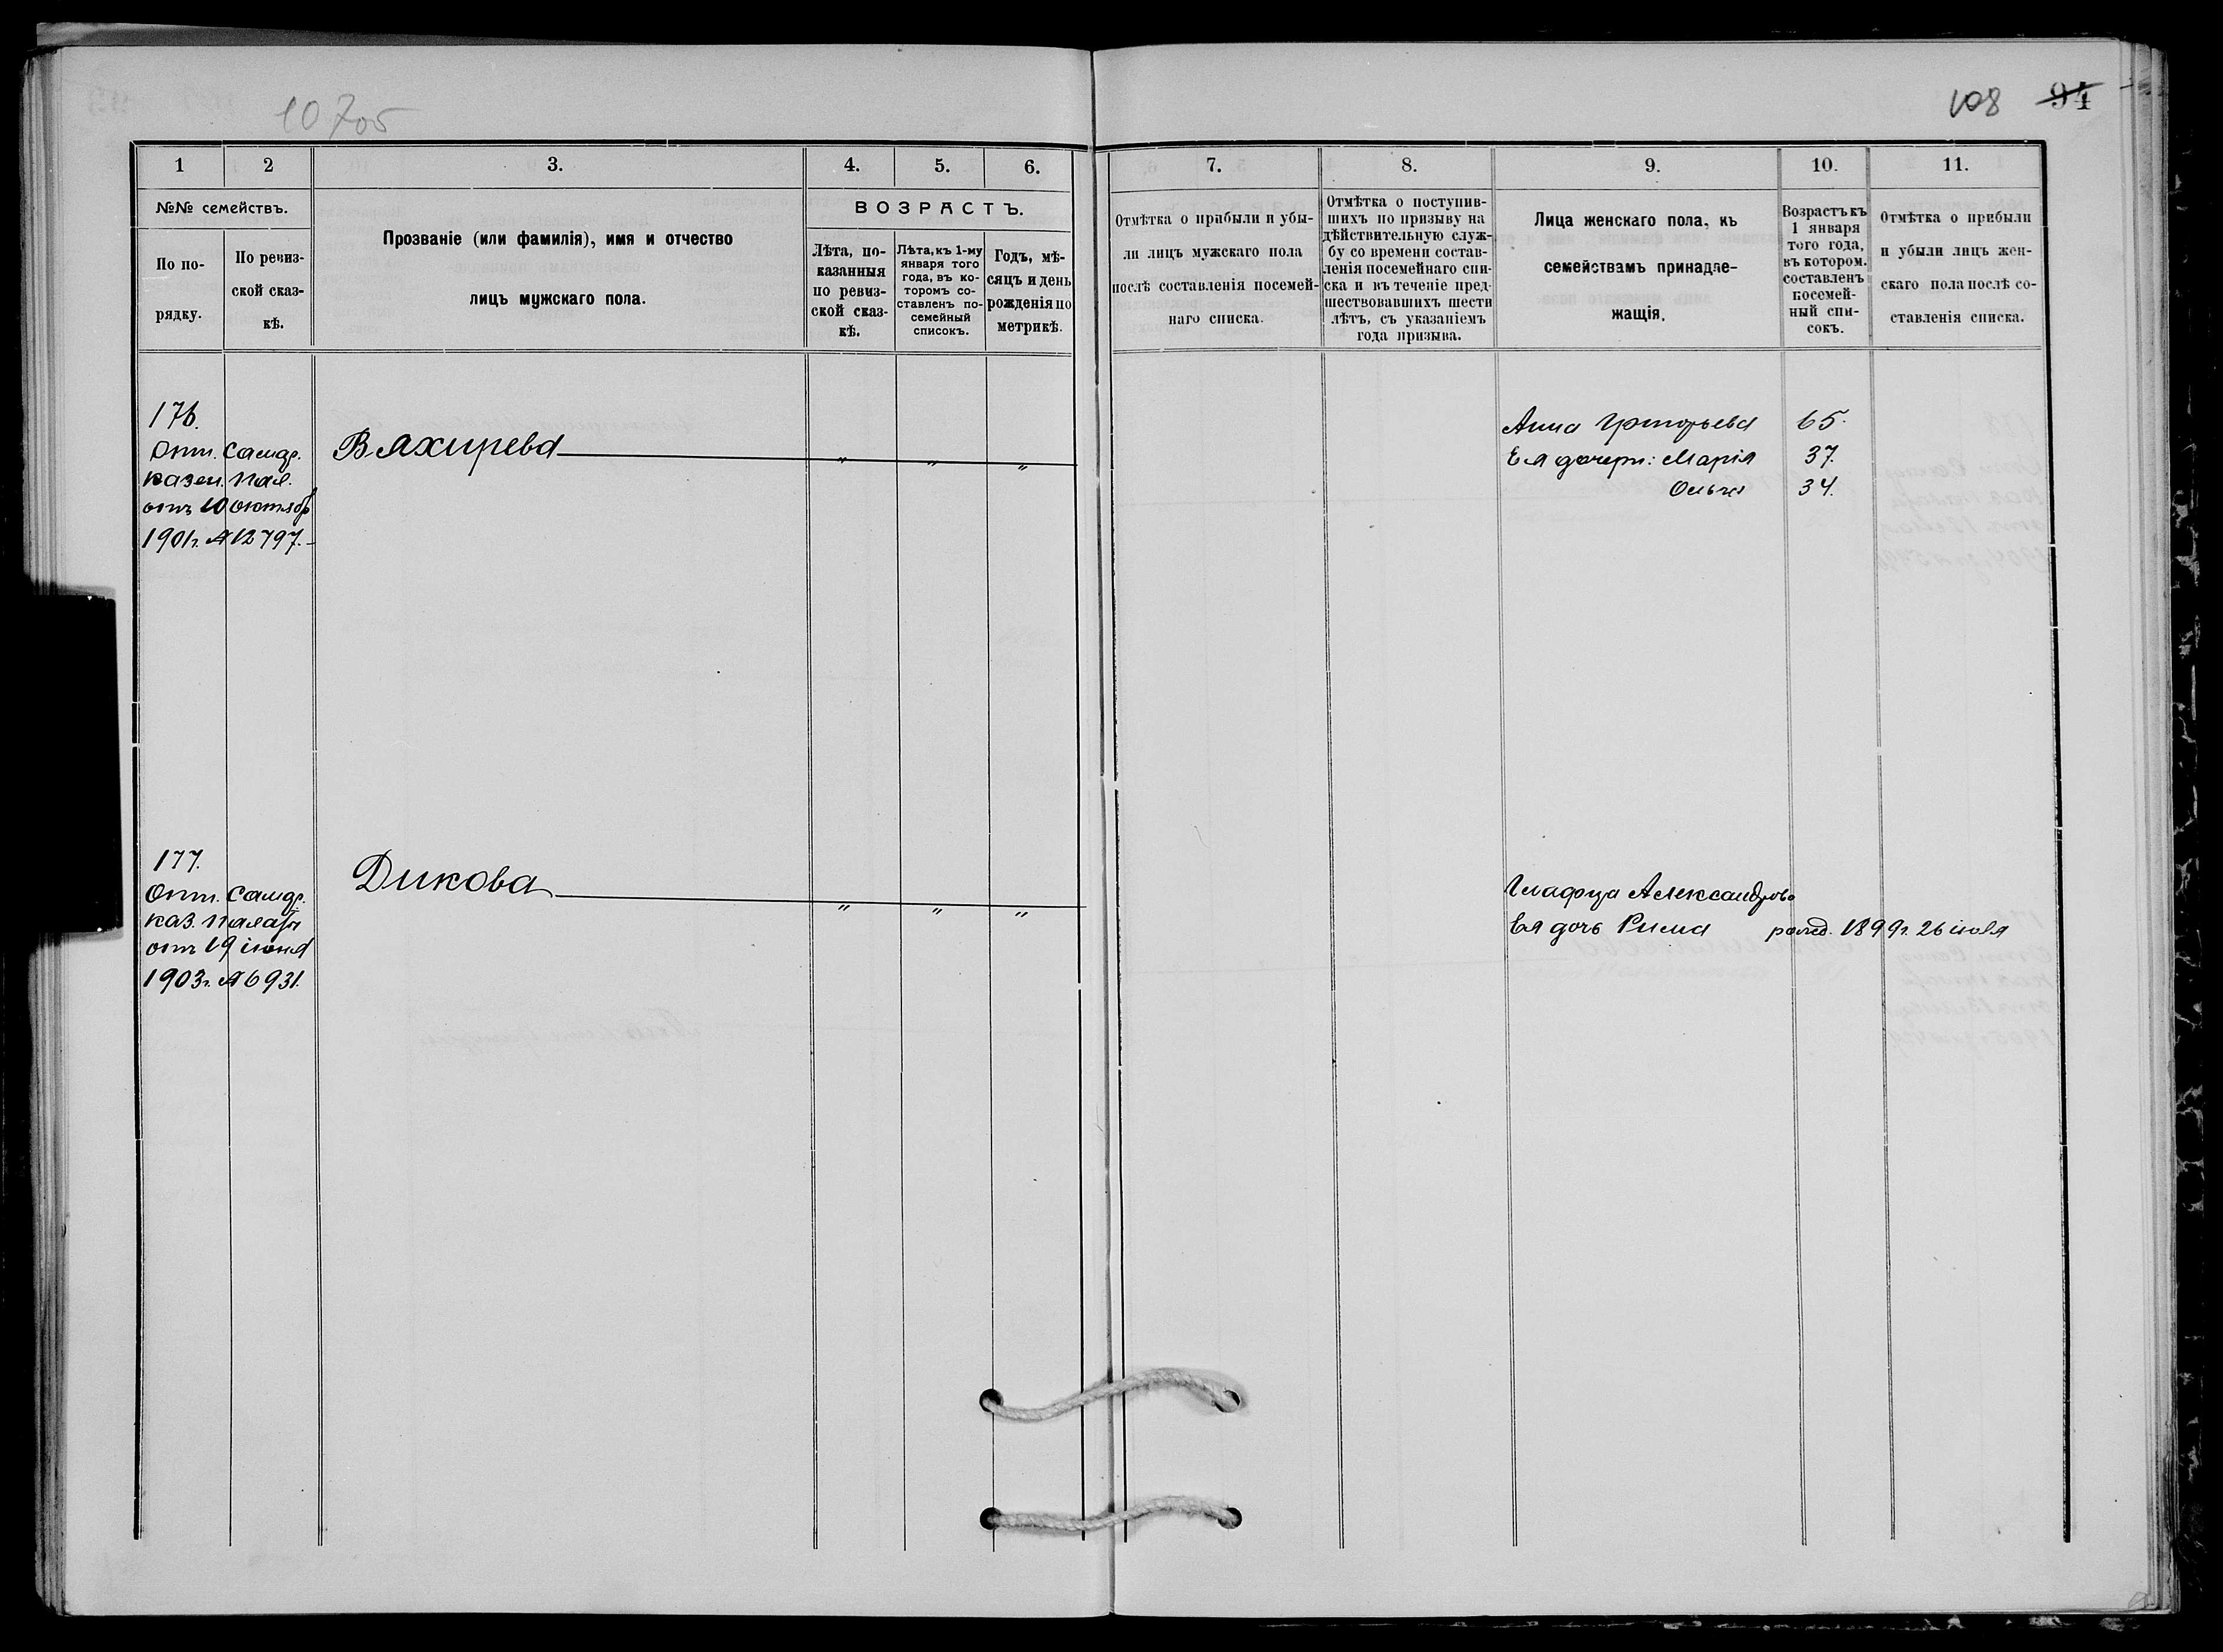 10705
108 94
1 2 3. 4. 5. 6. 7. 8. 9. 10. 11.
№№ семействъ.
По по-
рядку.
По ревиз-
ской сказ-
кѣ.
Прозваніе (или фамилія), имя и отчество
лицъ мужскаго пола.
ВОЗРАСТЪ.
Лѣта, по-
казанныя
по ревиз-
ской сказ-
кѣ.
Лѣта, къ 1-му
января того
года, въ ко-
торомъ со-
ставленъ по-
семейный
списокъ.
Годъ, мѣ-
сяцъ и день
рожденія по
метрикѣ.
Отмѣтка о прибыли и убы-
ли лицъ мужскаго пола
послѣ составленія посемей-
наго списка.
Отмѣтка о поступив-
шихъ по призыву на
дѣйствительную служ-
бу со времени состав-
ленія посемейнаго спи-
ска и въ теченіе пред-
шествовавшихъ шести
лѣтъ, съ указаніемъ
года призыва.
Лица женскаго пола, къ
семействамъ принадле-
жащія.
Возрастъ къ
1 января
того года,
въ котором.
составленъ
посемей-
ный спи-
сокъ.
Отмѣтка о прибыли
и убыли лицъ жен-
скаго пола послѣ со-
ставленія списка.
176.
Отн. Самар.
казен. пал.
отъ 10 октяб
1901 г. № 12797.
Вяхирева " " "
Анна Григорьева 65.
Ея дочери: Марія 37.
Ольга 34.
177.
Отн. Самар.
каз. палаты
отъ 19 іюня
1903 г. № 6931.
Дикова " " "
Глафира Александрова
Ея дочь Римма рожд. 1899 г. 26 іюля